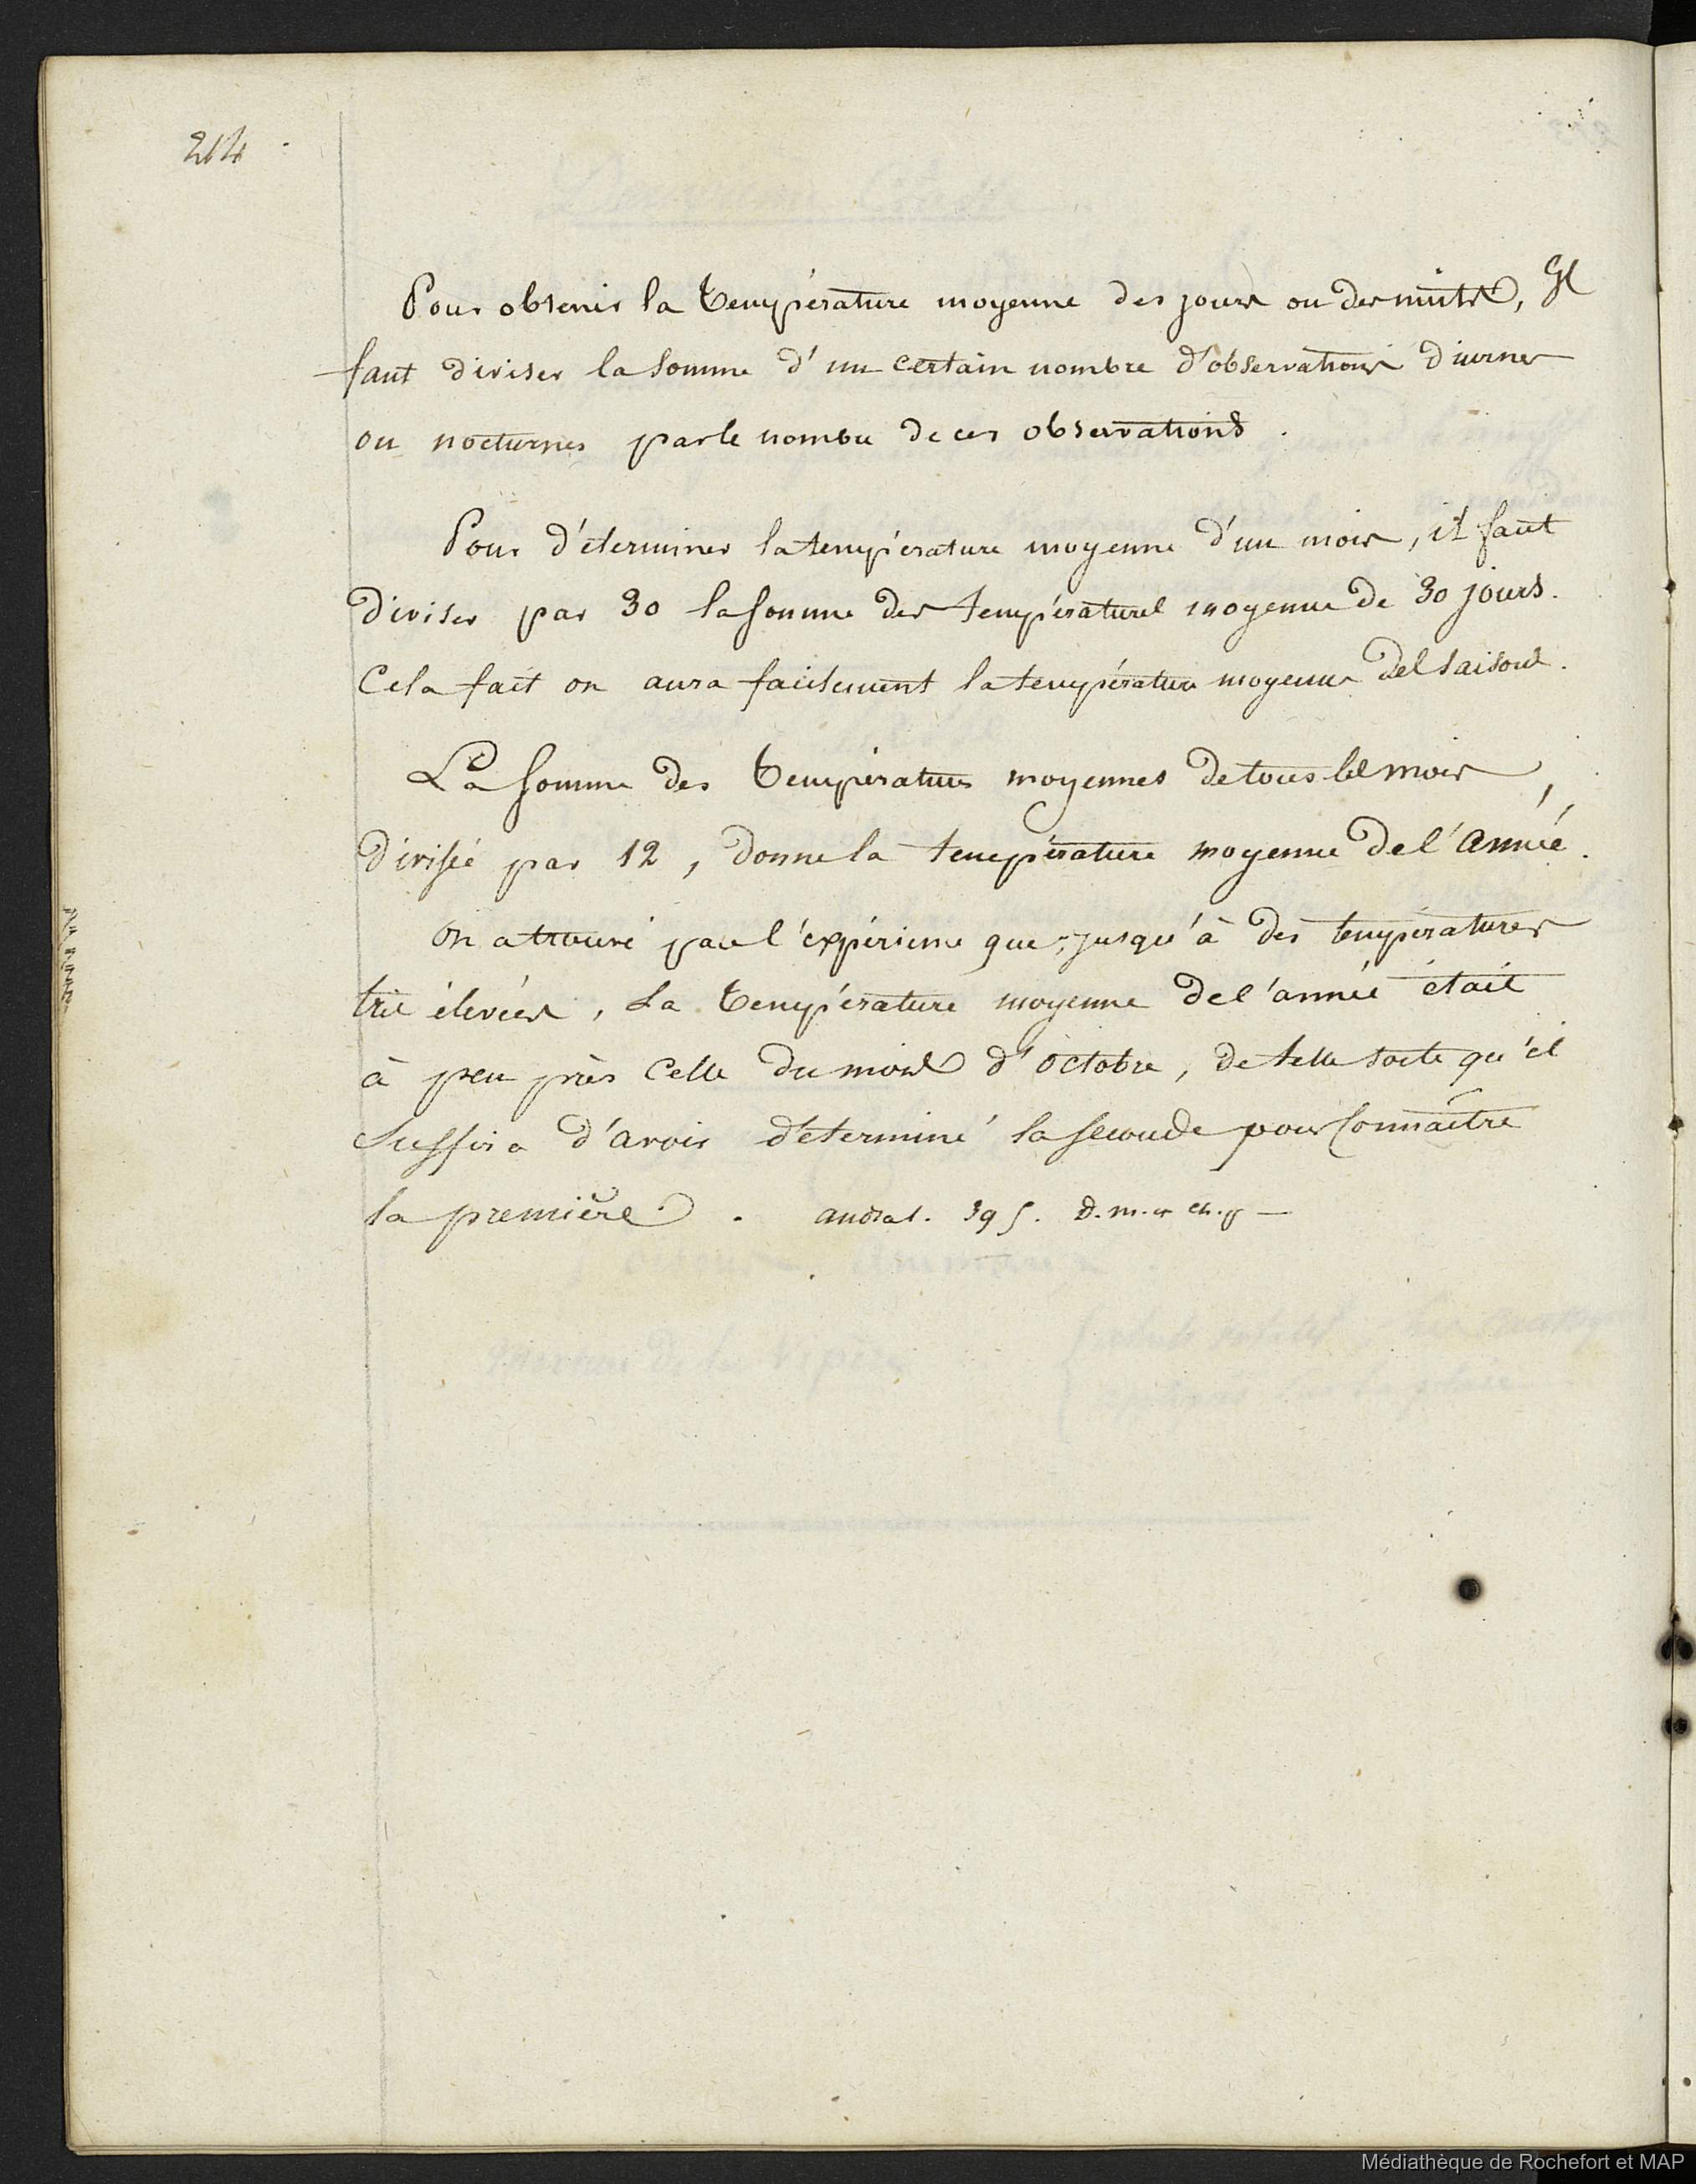 214
Pour obtenir la température moyenne des jours ou des nuits, Il
faut diviser la somme d'un certain nombre d'observations diurnes
ou nocturnes par le nombre de ces observations.
Pour déterminer la température moyenne d'un mois, il faut
diviser par 30 la somme des températures moyenne de 30 jours.
Cela fait on aura facilement la température moyenne des saisons.
La somme des températures moyennes de tous les mois,
divisée par 12, donne la température moyenne de l'année.
on a trouvé par l'expérience que, jusqu'à des températures
très élevées, la température moyenne de l'année était
à peu près celle du mois d'octobre, de telle sorte qu'il
suffira d'avoir déterminé la seconde pour connaître
la première. andral. 395. D. m. et ch.
Médiathèque de Rochefort et MAP